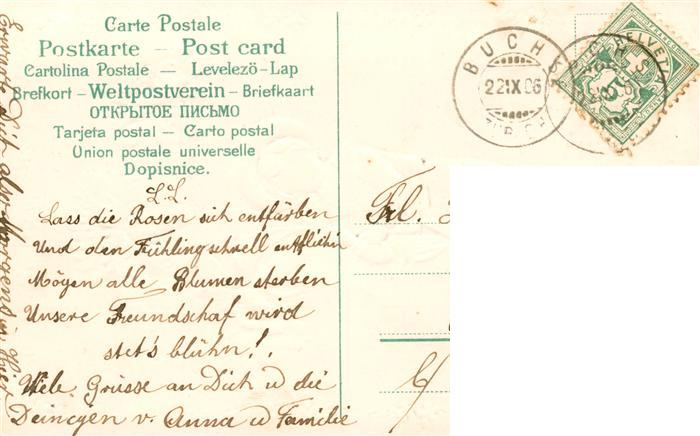 Carte Postale
Postkarte – Post card
Cartolina Postale – Levelező-Lap
Brefkort – Weltpostverein – Briefkaart
ОТКРЫТОЕ ПИСЬМО
Tarjeta postal – Carto postal
Union postale universelle
Dopisnice.
L.L.
Lass die Rosen sich entfärben
Und den Frühling schnell entfliehn
Mögen alle Blumen sterben
Unsere Freundschaf wird
stet's blühn!.
Viele Grüsse an Dich u die
Deinigen v. Anna u Familie
Erwarte Dich also
BUCHS
22 IX 06
HELVETIA
FRANCO
5
Frl.